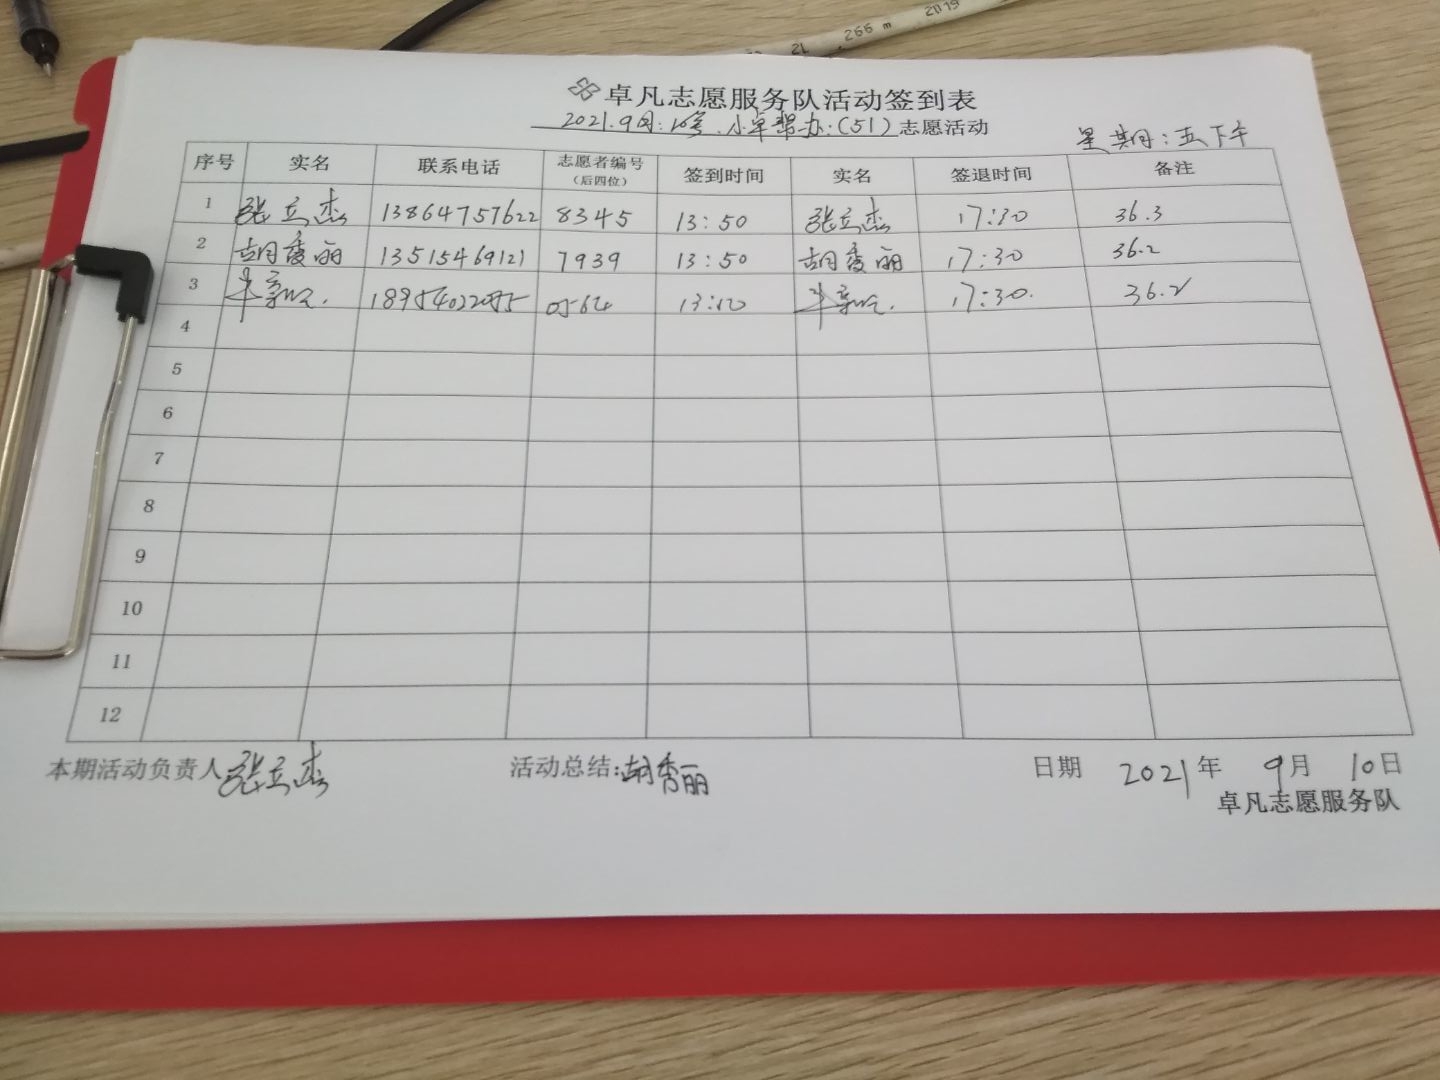 266 m 2019
2L
卓凡志愿服务队活动签到表
2021.9月.10号.小卓帮办:(51)志愿活动
星期:五下午
序号 实名 联系电话 志愿者编号(后四位) 签到时间 实名 签退时间 备注
1 张立杰 13864757622 8345 13:50 张立杰 17:30 36.3
2 胡秀丽 13515469121 7939 13:50 胡秀丽 17:30 36.2
3 0564 17:30. 36.2
4
5
6
7
8
9
10
11
12
本期活动负责人 张立杰 活动总结:胡秀丽 日期 2021年 9月 10日
卓凡志愿服务队